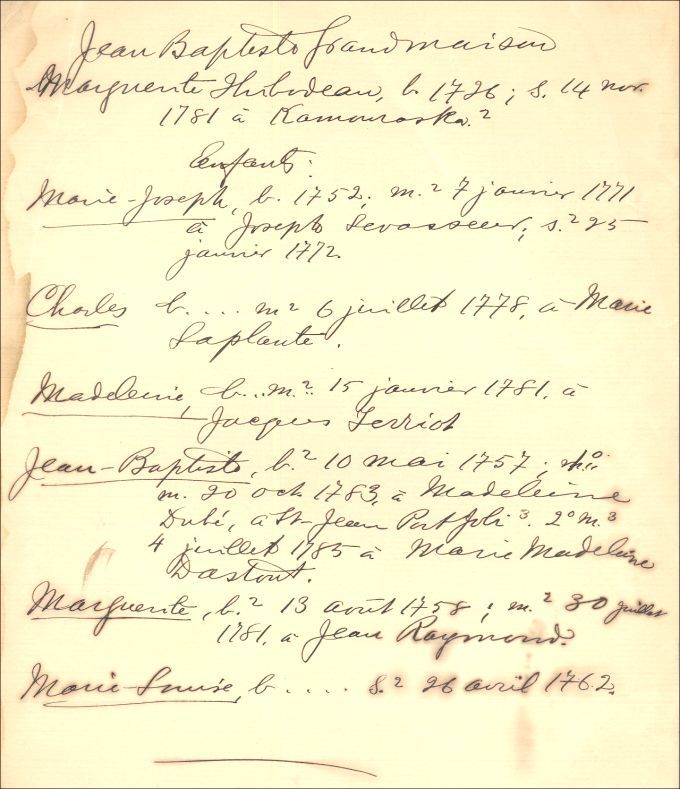 Jean Baptiste Grandmaison
Marguerite Thibodeau, b. 1726; s. 14 nov.
1781 à Kamouraska.²
Enfants:
Marie-Joseph, b. 1752; m.² 7 janvier 1771
à Joseph Levasseur; s.² 25
janvier 1772.
Charles b.... m² 6 juillet 1778, à Marie
Laplante.
Madeleine, b... m.² 15 janvier 1781, à
Jacques Terriot
Jean-Baptiste, b.² 10 mai 1757;
m. 20 oct 1783, à Madeleine
Dubé, à St-Jean Port Joli³. 2° m.³
4 juillet 1785 à Marie Madeleine
Dastout.
Marguerite, b.² 13 août 1758; m.² 30 juillet
1781, à Jean Raymond.
Marie-Louise, b.... s.² 26 avril 1762.